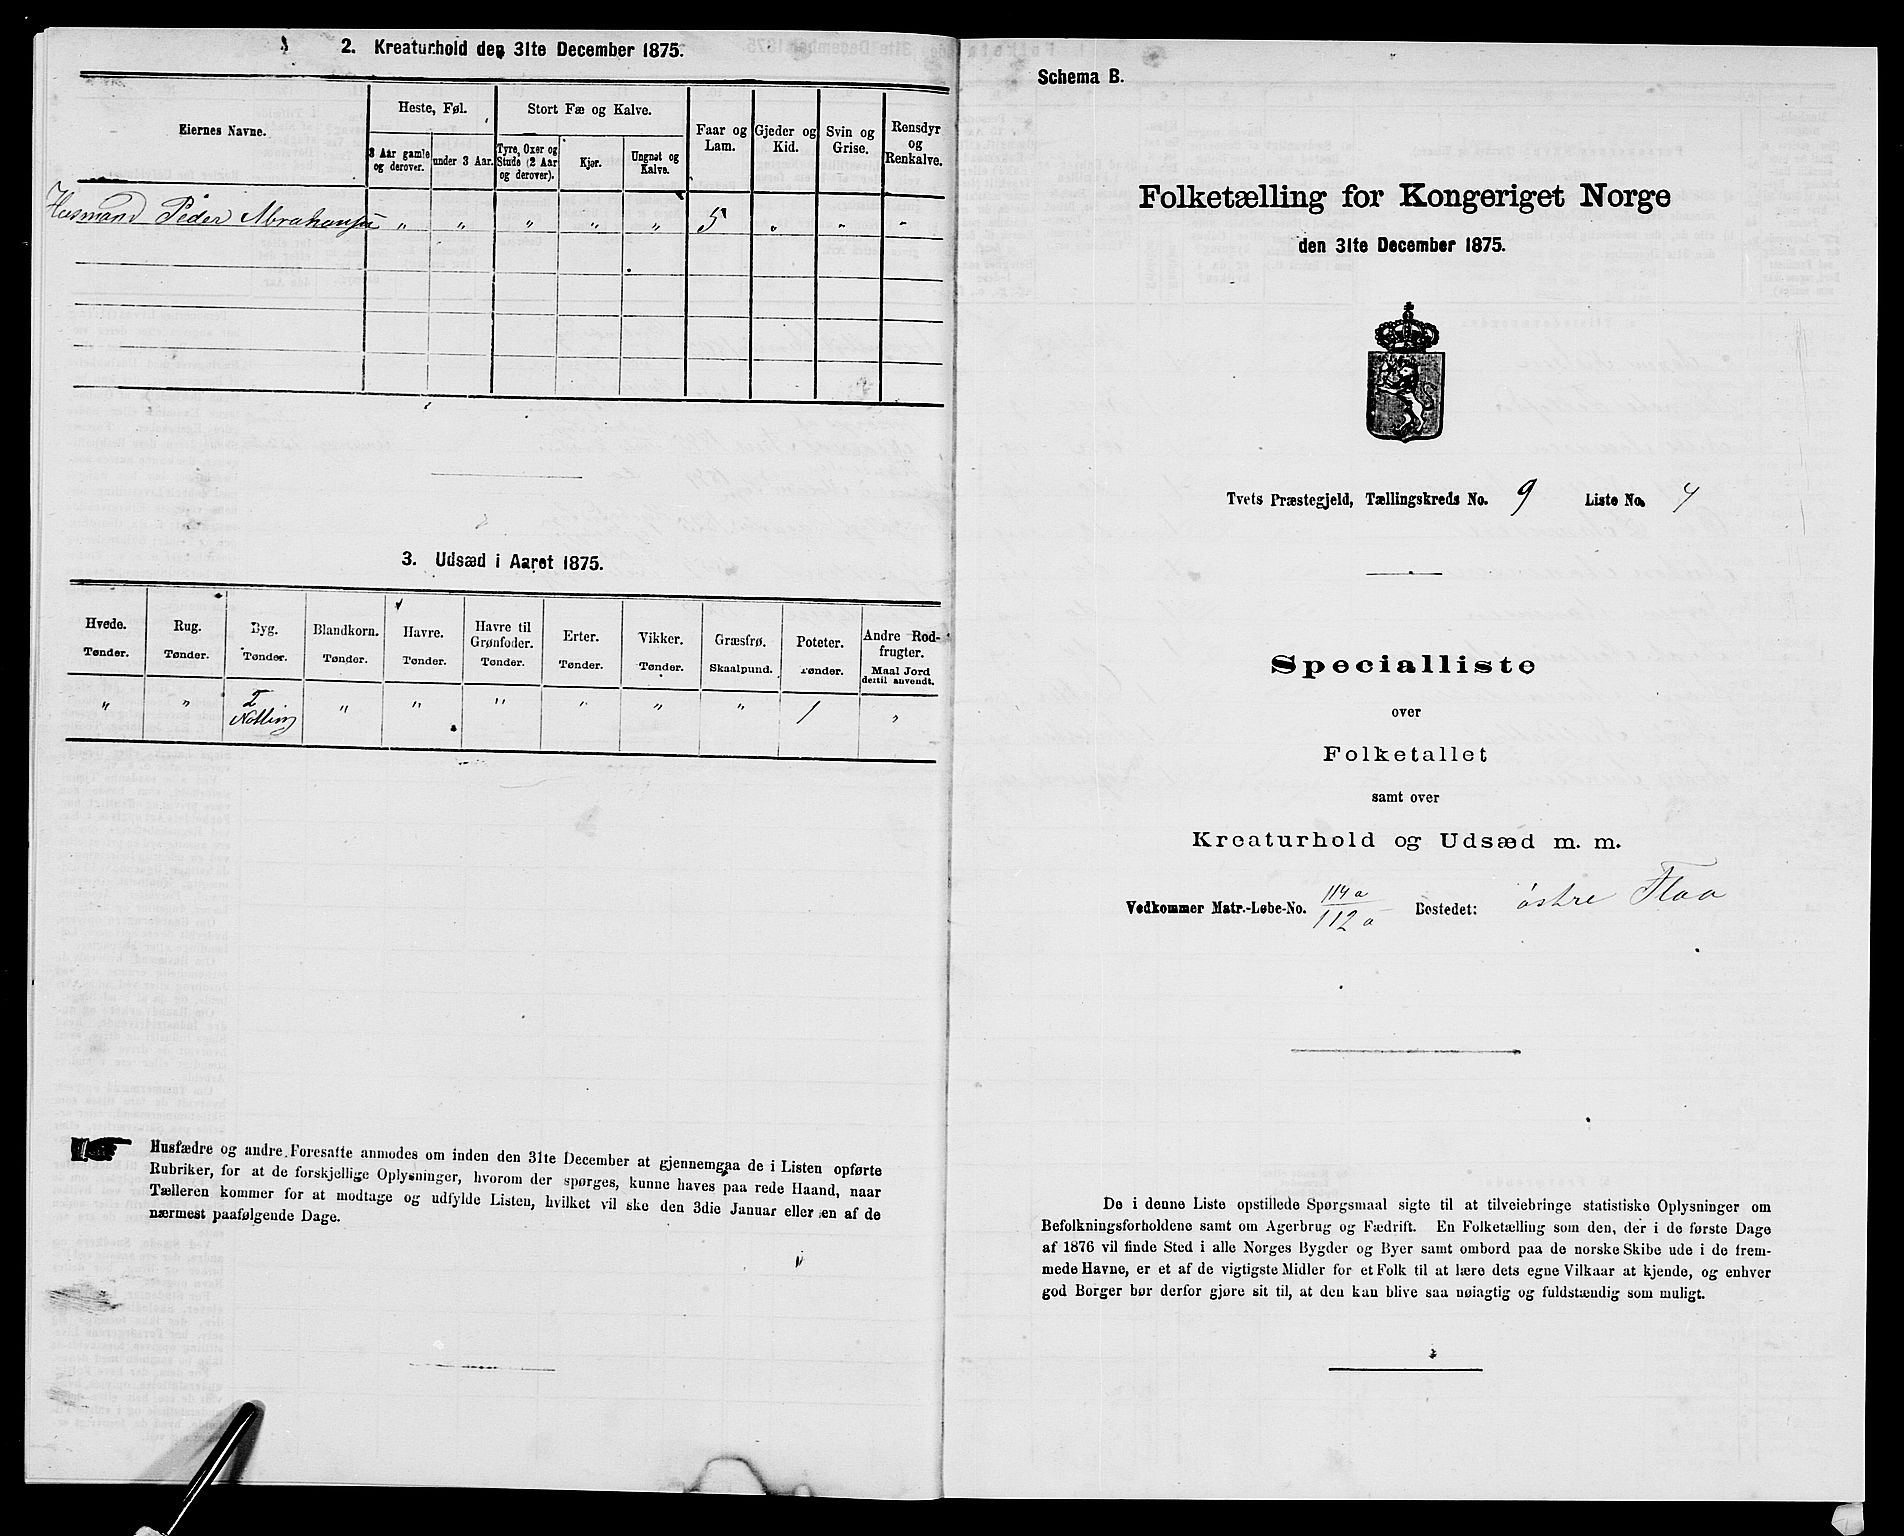 2. Kreaturhold den 31te December 1875.
Eiernes Navne.
Heste, Føl.
Stort Fæ og Kalve.
Faar og Lam.
Gjeder og Kid.
Svin og Grise.
Rensdyr og Renkalve.
3 Aar gamle og derover.
under 3 Aar.
Tyre, Oxer og Stude (2 Aar og derover).
Kjør.
Ungnøt og Kalve.
Husmand Peder Abrahamsen " " " " " 5 " " "
3. Udsæd i Aaret 1875.
Hvede. Rug. Byg. Blandkorn. Havre. Havre til Grønfoder. Erter. Vikker. Græsfrø. Poteter. Andre Rodfrugter.
Tønder. Tønder. Tønder. Tønder. Tønder. Tønder. Tønder. Tønder. Skaalpund. Tønder. Maal Jord dertil anvendt.
" " " " " " " " 1 "
Husfædre og andre Foresatte anmodes om inden den 31te December at gjennemgaa de i Listen opførte
Rubriker, for at de forskjellige Oplysninger, hvorom der spørges, kunne haves paa rede Haand, naar
Tælleren kommer for at modtage og udfylde Listen, hvilket vil ske den 3die Januar eller en af de
nærmest paafølgende Dage.
Schema B.
Folketælling for Kongeriget Norge
den 31te December 1875.
Tvets Præstegjeld, Tællingskreds No. 9 Liste No. 4
Specialliste
over
Folketallet
samt over
Kreaturhold og Udsæd m. m.
Vedkommer Matr.-Løbe-No. 114a/112a Bostedet: østre Flaa
De i denne Liste opstillede Spørgsmaal sigte til at tilveiebringe statistiske Oplysninger om
Befolkningsforholdene samt om Agerbrug og Fædrift. En Folketælling som den, der i de første Dage
af 1876 vil finde Sted i alle Norges Bygder og Byer samt ombord paa de norske Skibe ude i de frem-
mede Havne, er et af de vigtigste Midler for et Folk til at lære dets egne Vilkaar at kjende, og enhver
god Borger bør derfor gjøre sit til, at den kan blive saa nøiagtig og fuldstændig som muligt.